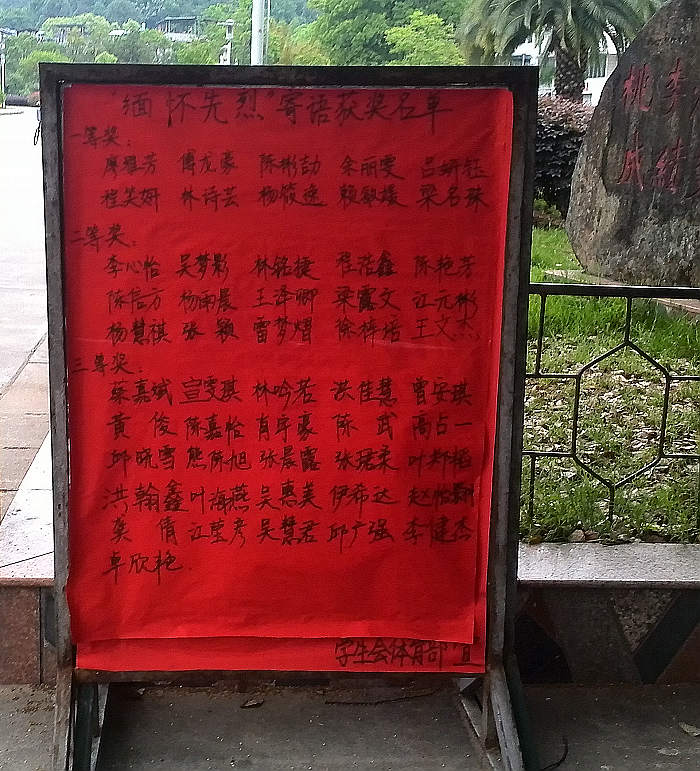 "缅怀先烈"寄语获奖名单
一等奖:
廖雅芳 傅龙豪 陈彬劼 余丽雯 吕妍钰
程笑妍 林诗芸 杨筱逸 赖敏媛 梁名珠
二等奖:
李心怡 吴梦影 林铭捷 程浩鑫 陈艳芳
陈信方 杨雨晨 王泽卿 梁露文 江元彬
杨慧祺 张颖 雷梦熠 徐梓恬 王文杰
三等奖:
蔡嘉斌 宣雯琪 林吟若 洪佳慧 曾安琪
黄俊 陈嘉怡 肖宇豪 陈武 高占一
邱晓雪 熊陈旭 张晨露 张珺柔 叶郑韬
洪翰鑫 叶海燕 吴惠美 伊希达 赵怡
龚倩 江莹彦 吴慧君 邱广强 李健杰
卓欣艳.
学生会体育部 宣
桃李
成蹊